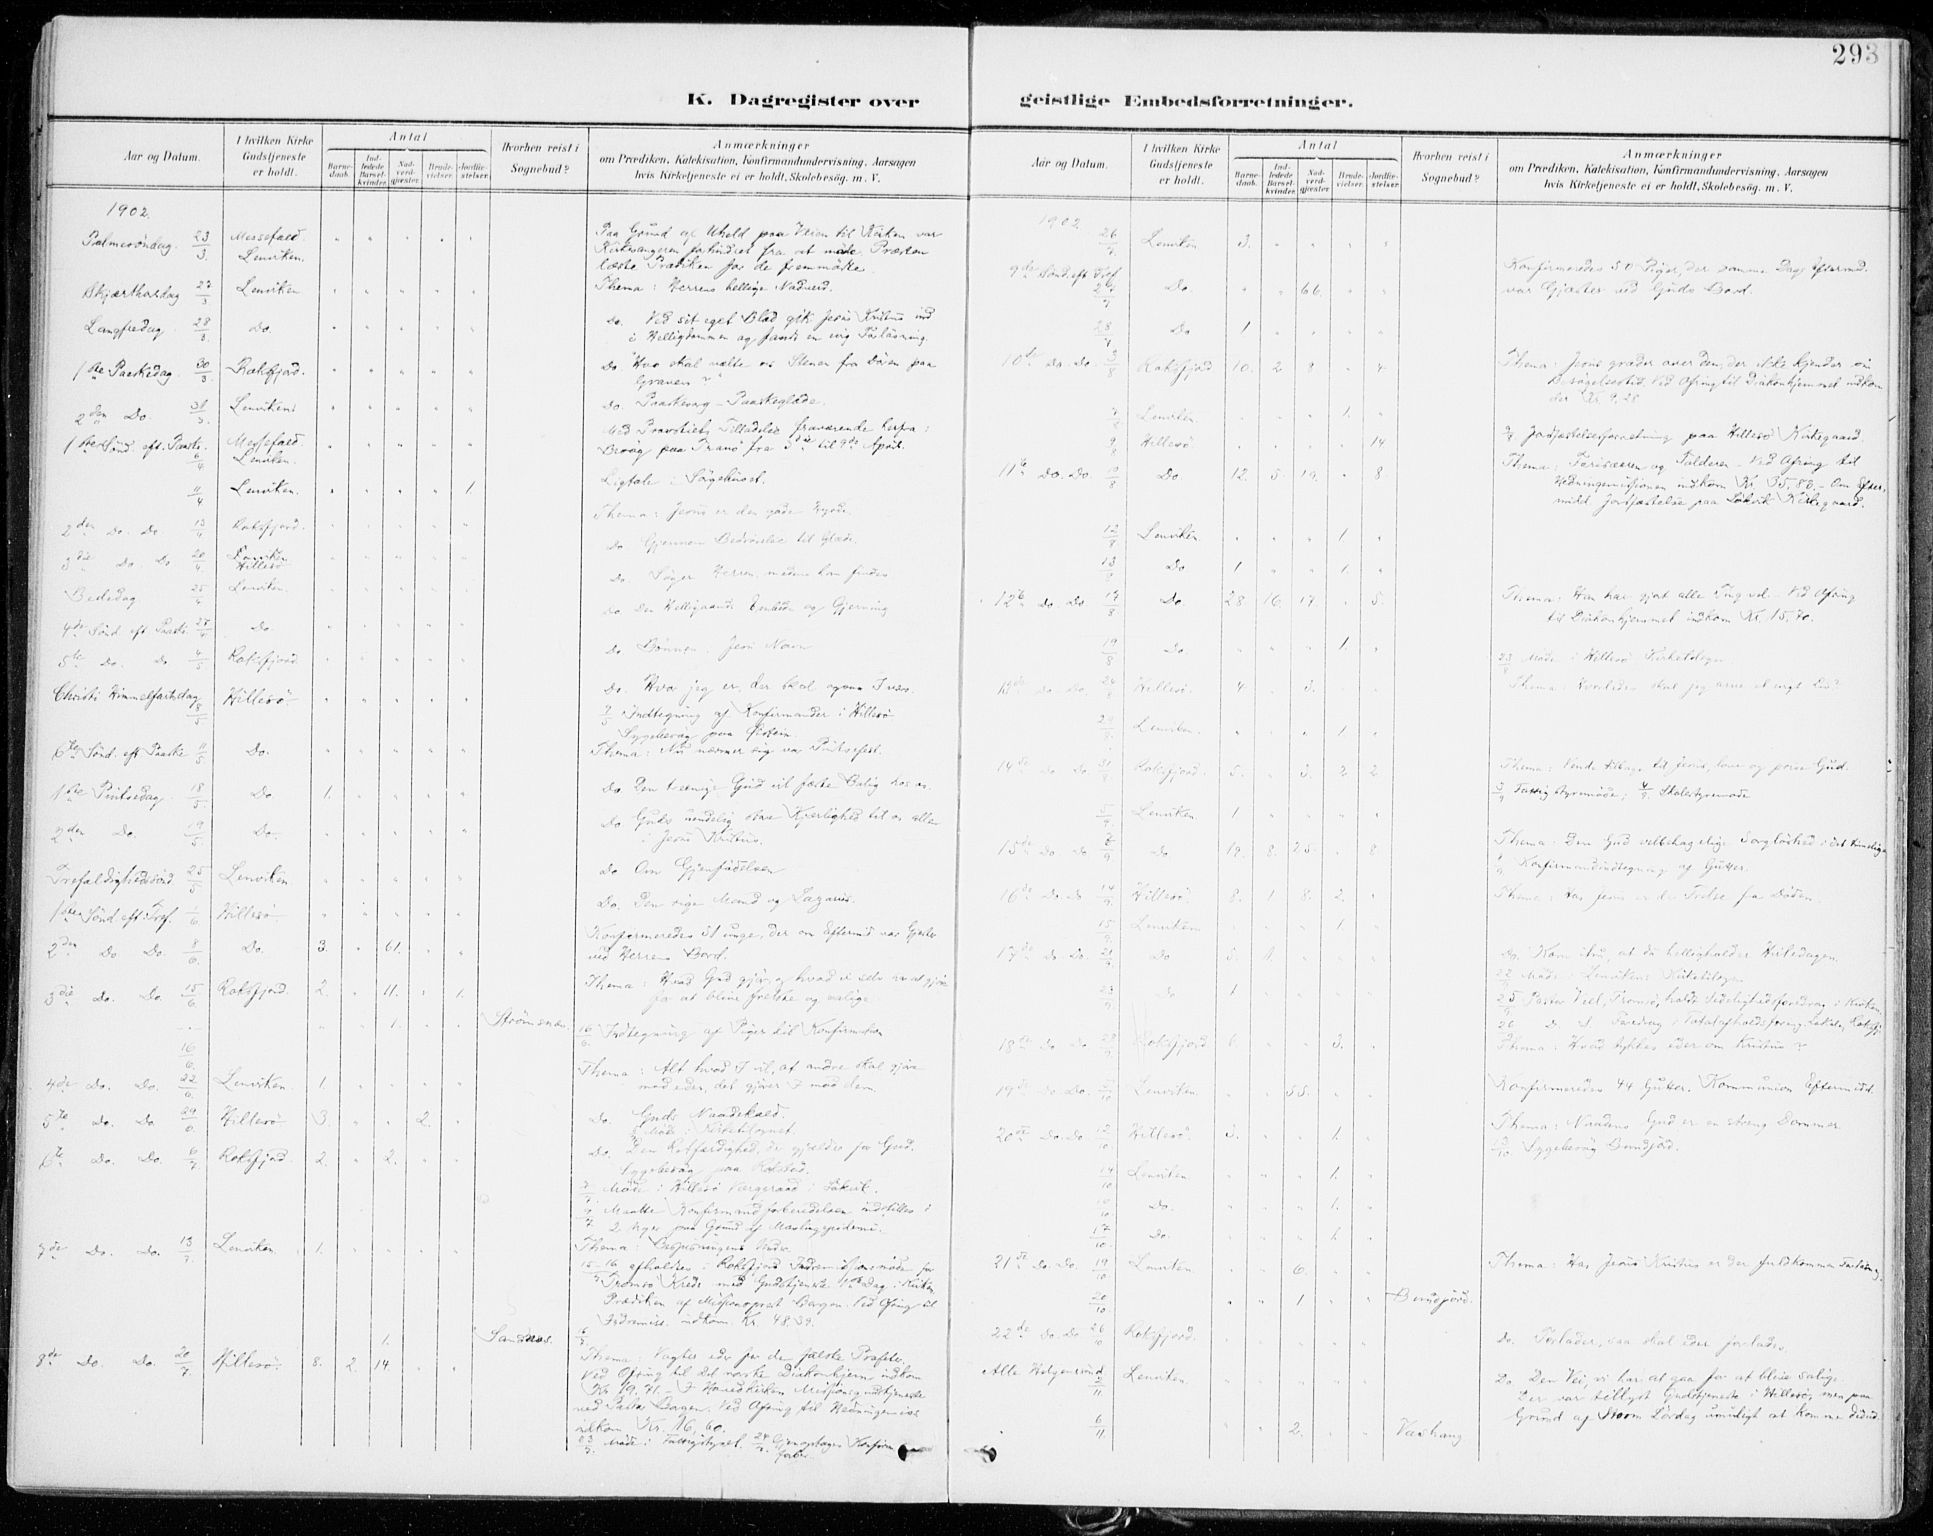 293
K. Dagregister over geistlige Embedsforretninger.
Aar og Datum.
I hvilken Kirke Gudstjeneste er holdt.
Antal
Barnedaab.
Indledede Barselkvinder.
Nadverdgjæster
Brudevielser.
Jordfæstelser.
Hvorhen reist i Sognebud?
Anmærkninger
om Prædiken, Katekisation, Konfirmandundervisning, Aarsagen
hvis Kirketjeneste ei er holdt, Skolebesøg, m. V.
1902.
Palmesöndag. 23/3 Messefald. Lenviken. Paa Grund af Uheld paa Veien til Kirken var
Kirkesangeren forhindret fra at møde. Præsten
læste Prædiken for de fremmötte.
Skjærthorsdag 27/3 Lenviken Thema: Herrens hellige Nadverd.
Langfredag 28/3 Do. Do. Ved sit eget Blod gik Jesus Kristus ind
i Helligdommen og fandt en evig Forløsning.
1ste Paaskedag. 30/3 Roksfjord. Do. "Hvo skal vælte os Stenen fra Døren paa
Graven?"
2den Do. 31/3 Lenviken Do. Paaskesorg - Paaskeglæde.
1ste Sönd. eft. Paaske. 6/4 Messefald. Lenviken. Med Provstiets Tilladelse fraværende
Besög paa Tranö fra 3die til 9de April.
11/4 Lenviken. 1 Ligtale i Sörgehuset.
2den Do. Do. 13/4 Roksfjord. Thema: Jesus er den gode Hyrde.
3die Do. Do. 20/4 Lenviken Hillesö Do. Gjennem Bedrövelse til Glæde.
Bededag 25/4 Lenviken. Do. Söger Herren, medens han findes
4de Sönd. eft. Paaske 27/4 Do. Do. Den Helligaands Embede og Gjerning
5te Do. Do. 4/5 Roksfjord Do. Bönnen i Jesu Navn
Christi Himmelfartsdag 8/5 Hillesö Do. Hvor jeg er, der skal ogsaa I være.
7/5 Indtegning af Konfirmander i Hillesö
Sygebesög paa
6te Sönd. eft. Paaske 11/5 Do. Thema: Nu nærmer sig vor Pintsefest.
1ste Pintsedag. 18/5 Do. 1. Do. Den treenige Gud vil fæste Bolig hos os.
2den Do. 19/5 Do. Do. Guds uendelig store Kjærlighed til os alle
i Jesus Kristus.
Trefoldighedssönd. 25/5 Lenviken Do. Om Gjenfödelsen
1ste Sönd. eft. Tref. 1/6 Hillesö Do. Den rige Mand og Lazarus.
2den Do. Do. 8/6 Do. 3. 61. Konfirmeredes 51 unge, der om Eftermid. var Gjæster
ved Herrens Bord.
3die Do. Do. 15/6 Roksfjord. 2. 11. 1. Thema: Hvad Gud gjör, og hvad vi selv har at gjöre
for at blive frelste og salige
1. Strömsnes. 16/6 Indtegning af Piger til Konfirmation
16/6
4de Do. Do. 22/6 Lenviken. 1. Thema: Alt hvad I vil, at andre skal gjöre
mod eder, det gjörer I mod dem.
5te Do. Do. 29/6 Hillesö 3. 2. Do. Guds Naadekald.
Möde i Kirketilsynet.
6te Do. Do. 6/7 Roksfjord. 2. 2. Do. Den Retfærdighed, der gjælder for Gud.
Sygebesög paa
7/7 Möde i Hillesö Værgeraad i
9/7 Maatte Konfirmandforberedelsen indstilles i
2 Uger paa Grund af Mæslingepidemi.
7de Do. Do. 13/7 Lenviken. 1. Thema: Bespisningens Under.
15-16/7 afholdtes i Roksfjord Indremissionsmöde for
Tromsö Kreds med Gudstjeneste 1ste Dag i Kirken.
Prædiken af Missionsprest Bergan. Ved Ofring til
Indremiss. indkom. Kr. 48,39.
1. Sandnes. 6/7
8de Do. Do. 20/7 Hillesö. 8. 2. 14. Thema: Vogter eder for de falske Profeter.
Ved Ofring til det norske Diakonhjem indkom
Kr. 19,71. - I Hovedkirken Missionsgudstjeneste
ved Pastor Bergan. Ved Ofring til Hedningemiss.
indkom Kr. 16,60.
23/7 Möde i Fattigstyret. 24/7 Gjenoptages Konfirm.
forber.
1902
26/7 Lenviken 3.
9de Sönd. eft. Tref. 27/7 Do. 66. Konfirmeredes 50 Piger, der samme Dags Eftermid.
var Gjæster ved Guds Bord.
28/7 Do 1
10de Do. Do. 3/8 Roksfjord 10. 2 8 4 Thema: Jesus græder over den, der ikke kjender sin
Besögelsestid. Ved Ofring til Diakonhjemmet indkom
der Kr. 9,28
7/8 Lenviken. 1.
9/8 Hillesö 14 9/8 Jordfæstelsesforretning paa Hillesö Kirkegaard.
11te Do. Do. 10/8 Do 12. 5. 19. 8. Thema: Farisæeren og Tolderen - Ved Ofring til
Hedningemissionen indkom Kr. 35,83. - Om Efter-
midd. Jordfæstelse paa Kirkegaard.
12/8 Lenviken. 1.
13/8 Do 1 1.
12te Do. Do. 17/8 Do. 28. 16. 17. 5. Thema: Han har gjort alle Ting vel - Ved Ofring
til Diakonhjemmet indkom Kr. 15,70.
19/8 Do. 1. 23/8 Möde i Hillesö Kirketilsyn
13de Do Do. 24/8 Hillesö. 4. 3. Thema: Hvorledes skal jeg arve et evigt Liv?
29/8 Lenviken. 1
14de Do. Do. 31/8 Roksfjord. 5. 3. 2 2. Thema: Vende tilbage til Jesus, love og prise Gud.
3/9 Fattigstyremöde; 4/9 Skolestyremöde
5/9 Lenviken 1
15de Do. Do. 7/9 Do 19. 8. 25. 8 Thema: Den Gud velbehagelige Sorglöshed i det timelige
Konfirmandindtegning af Gutter.
16de Do. Do 14/9 Hillesö. 8. 1 8. 2. Thema: Hos Jesus er der Frelse fra Döden.
15/9 Lenviken 1.
17de Do. Do. 21/9 Do 5. 1. Do. Kom ihu, at du helligholder Hviledagen.
22/9 Möde i Lenvikens Kirketilsyn
23/9 Do 1 25/9 Pastor Tromsö, holdt Sedelighedsforedrag i Kirken.
26 Foredrag i Totalafholdsforen. Lokale,
18de Do Do 28/9 Roksfjord 6. 3. Thema: Hvad tykkes eder om Kristus?
19de Do. Do. 5/10 Lenviken. 55. Konfirmeredes 44 Gutter. Kommunion Eftermidd.
20de Do. Do. 12/10 Hillesö. 3. 1. Thema: Naadens Gud er en streng Dommer.
Sygebesög
14/10 Lenviken 1.
16/10 Do. 1.
17/10 Do. 1.
21de Do. Do. 19/10 Lenviken. 6. Thema: Hos Jesus Kristus er der fuldkommen Forlösning.
20/10 1
22de Do. Do. 26/10 Roksfjord. Do. Forlader, saa skal eder forlades.
Alle Helgensönd. 2/11 Lenviken. Do. Den Vei, vi har at gaa for at blive salige.
Der var tillyst Gudstjeneste i Hillesö, men paa
Grund af Storm Lördag umuligt at komme didud.
6/11 2. Vashaug